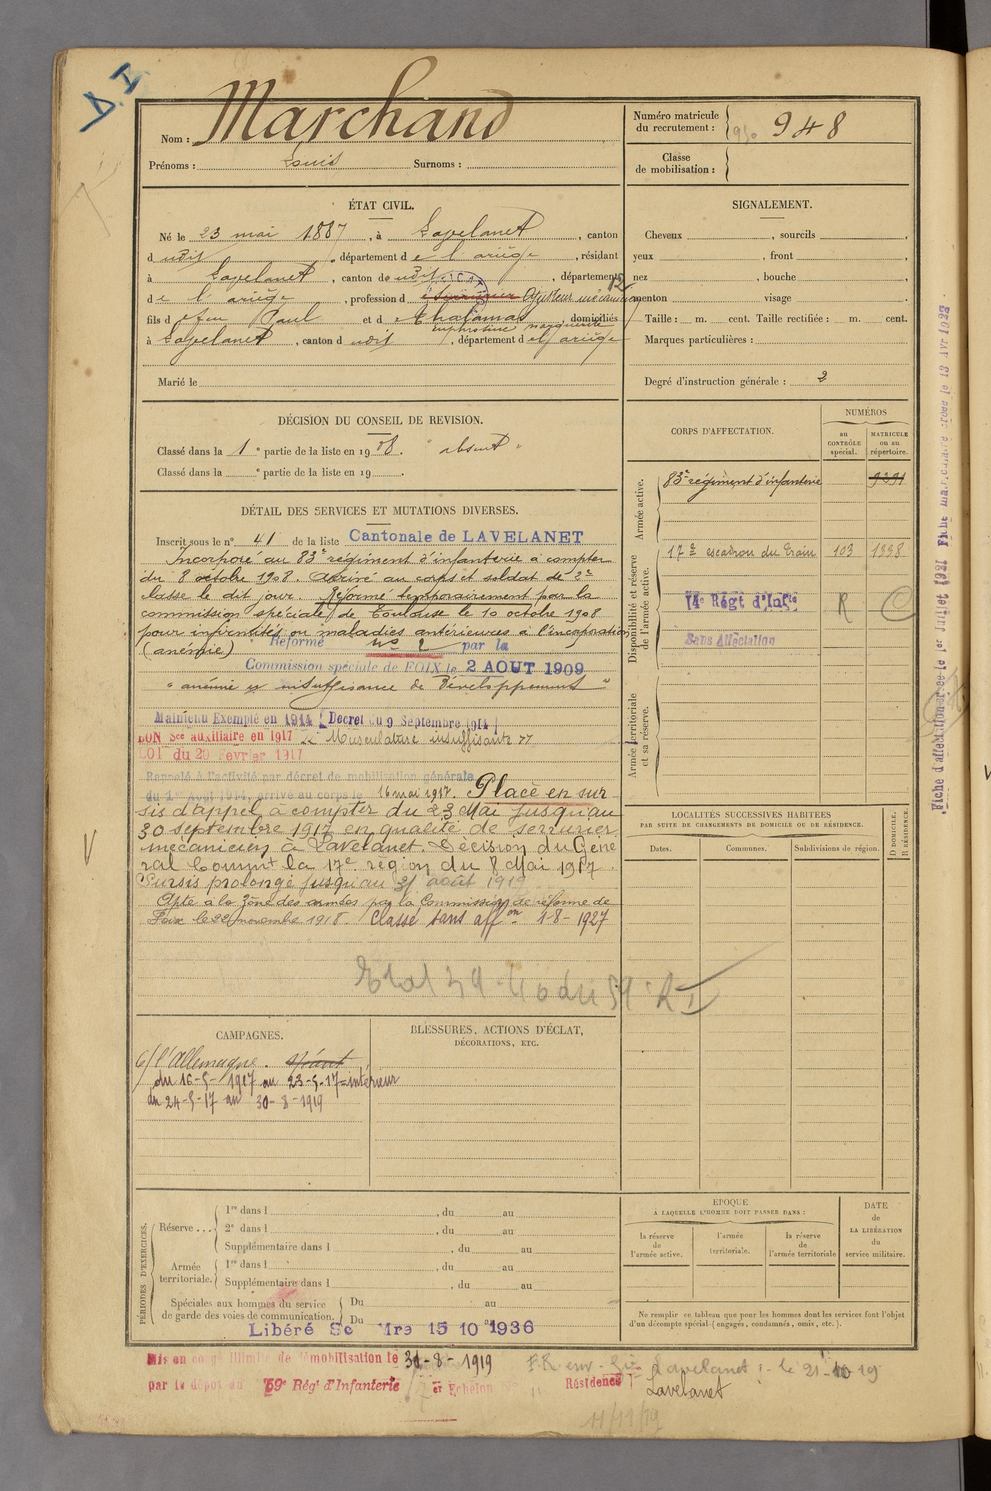 D.I
Nom : Marchand
Prénoms : Louis Surnoms :
Numéro matricule du recrutement : 948
Classe de mobilisation :
ÉTAT CIVIL.
Né le 23 mai 1887, à Lavelanet, canton
dudit, département de l'ariège, résidant
à Lavelanet, canton de udit, département
de l'ariège, profession d Ajusteur mécanicien
fils de feu Paul et de Chalamas, domiciliés
euphrosine marguerite
à Lavelanet, canton dudit, département de l'ariège
Marié le
SIGNALEMENT.
Cheveux , sourcils ,
yeux , front ,
nez , bouche
menton visage
Taille : m. cent. Taille rectifiée : m. cent.
Marques particulières :
Degré d'instruction générale : 2
DÉCISION DU CONSEIL DE REVISION.
Classé dans la 1e partie de la liste en 1908. "absent"
Classé dans la e partie de la liste en 19 .
DÉTAIL DES SERVICES ET MUTATIONS DIVERSES.
Inscrit sous le n° 41 de la liste Cantonale de LAVELANET
Incorporé au 83e régiment d'infanterie à compter
du 8 octobre 1908. Arrivé au corps et soldat de 2e
classe le dit jour. Réformé temporairement par la
commission spéciale de Toulouse le 10 octobre 1908
pour infirmités ou maladies antérieures à l'incorporation
(anémie) Réformé n° 2 par la
Commission spéciale de FOIX le 2 AOUT 1909
"anémie et insuffisance de développement"
Maintenu Exempté en 1914 (Décret du 9 Septembre 1914)
BON Sce auxiliaire en 1917 "Musculature insuffisante"
LOI du 20 Février 1917
Rappelé à l'activité par décret de mobilisation générale
du 1er Août 1914, arrivé au corps le 16 mai 1917. Placé en sur
sis d'appel à compter du 23 Mai jusqu'au
30 septembre 1917 en qualité de serrurier
mécanicien à Lavelanet. Décision du Géné
ral Commt la 17e région du 8 Mai 1917.
Sursis prolongé jusqu'au 31 août 1919
Apte à la zône des armées par la Commission de réforme de
Foix le 22 novembre 1918. Classé sans affon 1-8-1927
CORPS D'AFFECTATION.
NUMÉROS
au CONTRÔLE spécial.
MATRICULE ou au répertoire.
Armée active.
83e régiment d'infanterie 9391
Disponibilité et réserve de l'armée active.
17e escadron du Train 103 1338
Régt d'Infie R
Sans Affectation
Armée territoriale et sa réserve.
LOCALITÉS SUCCESSIVES HABITÉES
PAR SUITE DE CHANGEMENTS DE DOMICILE OU DE RÉSIDENCE.
Dates. Communes. Subdivisions de région. D DOMICILE. R RÉSIDENCE.
CAMPAGNES.
C/ l'Allemagne. Néant
du 16-5-1917 au 23-5-17 = intérieur
du 24-5-17 au 30-8-1919
BLESSURES, ACTIONS D'ÉCLAT,
DÉCORATIONS, ETC.
PÉRIODES D'EXERCICES.
Réserve ...
1re dans l , du au
2e dans l , du au
Supplémentaire dans l , du au
Armée territoriale.
1re dans l , du au
Supplémentaire dans l , du au
Spéciales aux hommes du service de garde des voies de communication.
Du au
Du
Libéré Sce Mre 15 10 1936
ÉPOQUE
A LAQUELLE L'HOMME DOIT PASSER DANS :
la réserve de l'armée active.
l'armée territoriale.
la réserve de l'armée territoriale
DATE de LA LIBÉRATION du service militaire.
Ne remplir ce tableau que pour les hommes dont les services font l'objet
d'un décompte spécial (engagés, condamnés, omis, etc.).
Mis en congé illimité de démobilisation le 31-8-1919
par le dépôt du 59e Régt d'Infanterie Echelon Résidence Lavelanet
Lavelanet : le 21-10-19
11/12/19